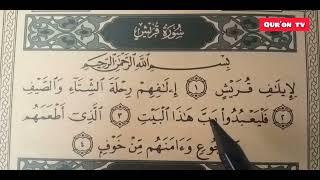 QUR'ON TV
سُورَةُ قُرَيْشٍ
بِسْمِ ٱللَّهِ ٱلرَّحْمَٰنِ ٱلرَّحِيمِ
لِإِيلَٰفِ قُرَيْشٍ ١ إِۦلَٰفِهِمْ رِحْلَةَ ٱلشِّتَآءِ وَٱلصَّيْفِ
٢ فَلْيَعْبُدُوا۟ رَبَّ هَٰذَا ٱلْبَيْتِ ٣ ٱلَّذِىٓ أَطْعَمَهُم
جُوعٍ وَءَامَنَهُم مِّنْ خَوْفٍ ٤